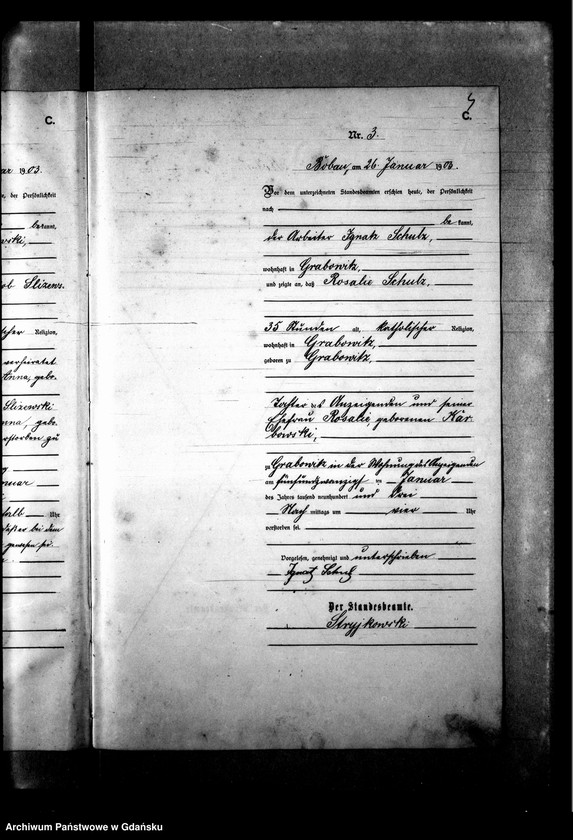 C.
ar 1903.
e, der Persönlichkeit
bekannt,
wski,
ob Slizews.
scher Religion,
verheiratet
Anna, gebo.
Slizewski
nna, gebo.
rstorben zu
nuar
halb Uhr
gewesen sei
C.
Nr. 3.
Bobau, am 26. Januar 1903.
Vor dem unterzeichneten Standesbeamten erschien heute, der Persönlichkeit
nach
bekannt,
der Arbeiter Ignatz Schulz,
wohnhaft in Grabowitz,
und zeigte an, daß Rosalie Schulz,
35 Stunden alt, katholischer Religion,
wohnhaft in Grabowitz,
geboren zu Grabowitz,
Tochter des Anzeigenden und seiner
Ehefrau Rosalie geborenen Kar
bowski,
zu Grabowitz in der Wohnung des Anzeigenden
am fünfundzwanzigsten Januar
des Jahres tausend neunhundert und drei
Nachmittags um vier Uhr
verstorben sei.
Vorgelesen, genehmigt und unterschrieben
Ignatz Schulz
Der Standesbeamte.
Stryjkowski
Archiwum Państwowe w Gdańsku